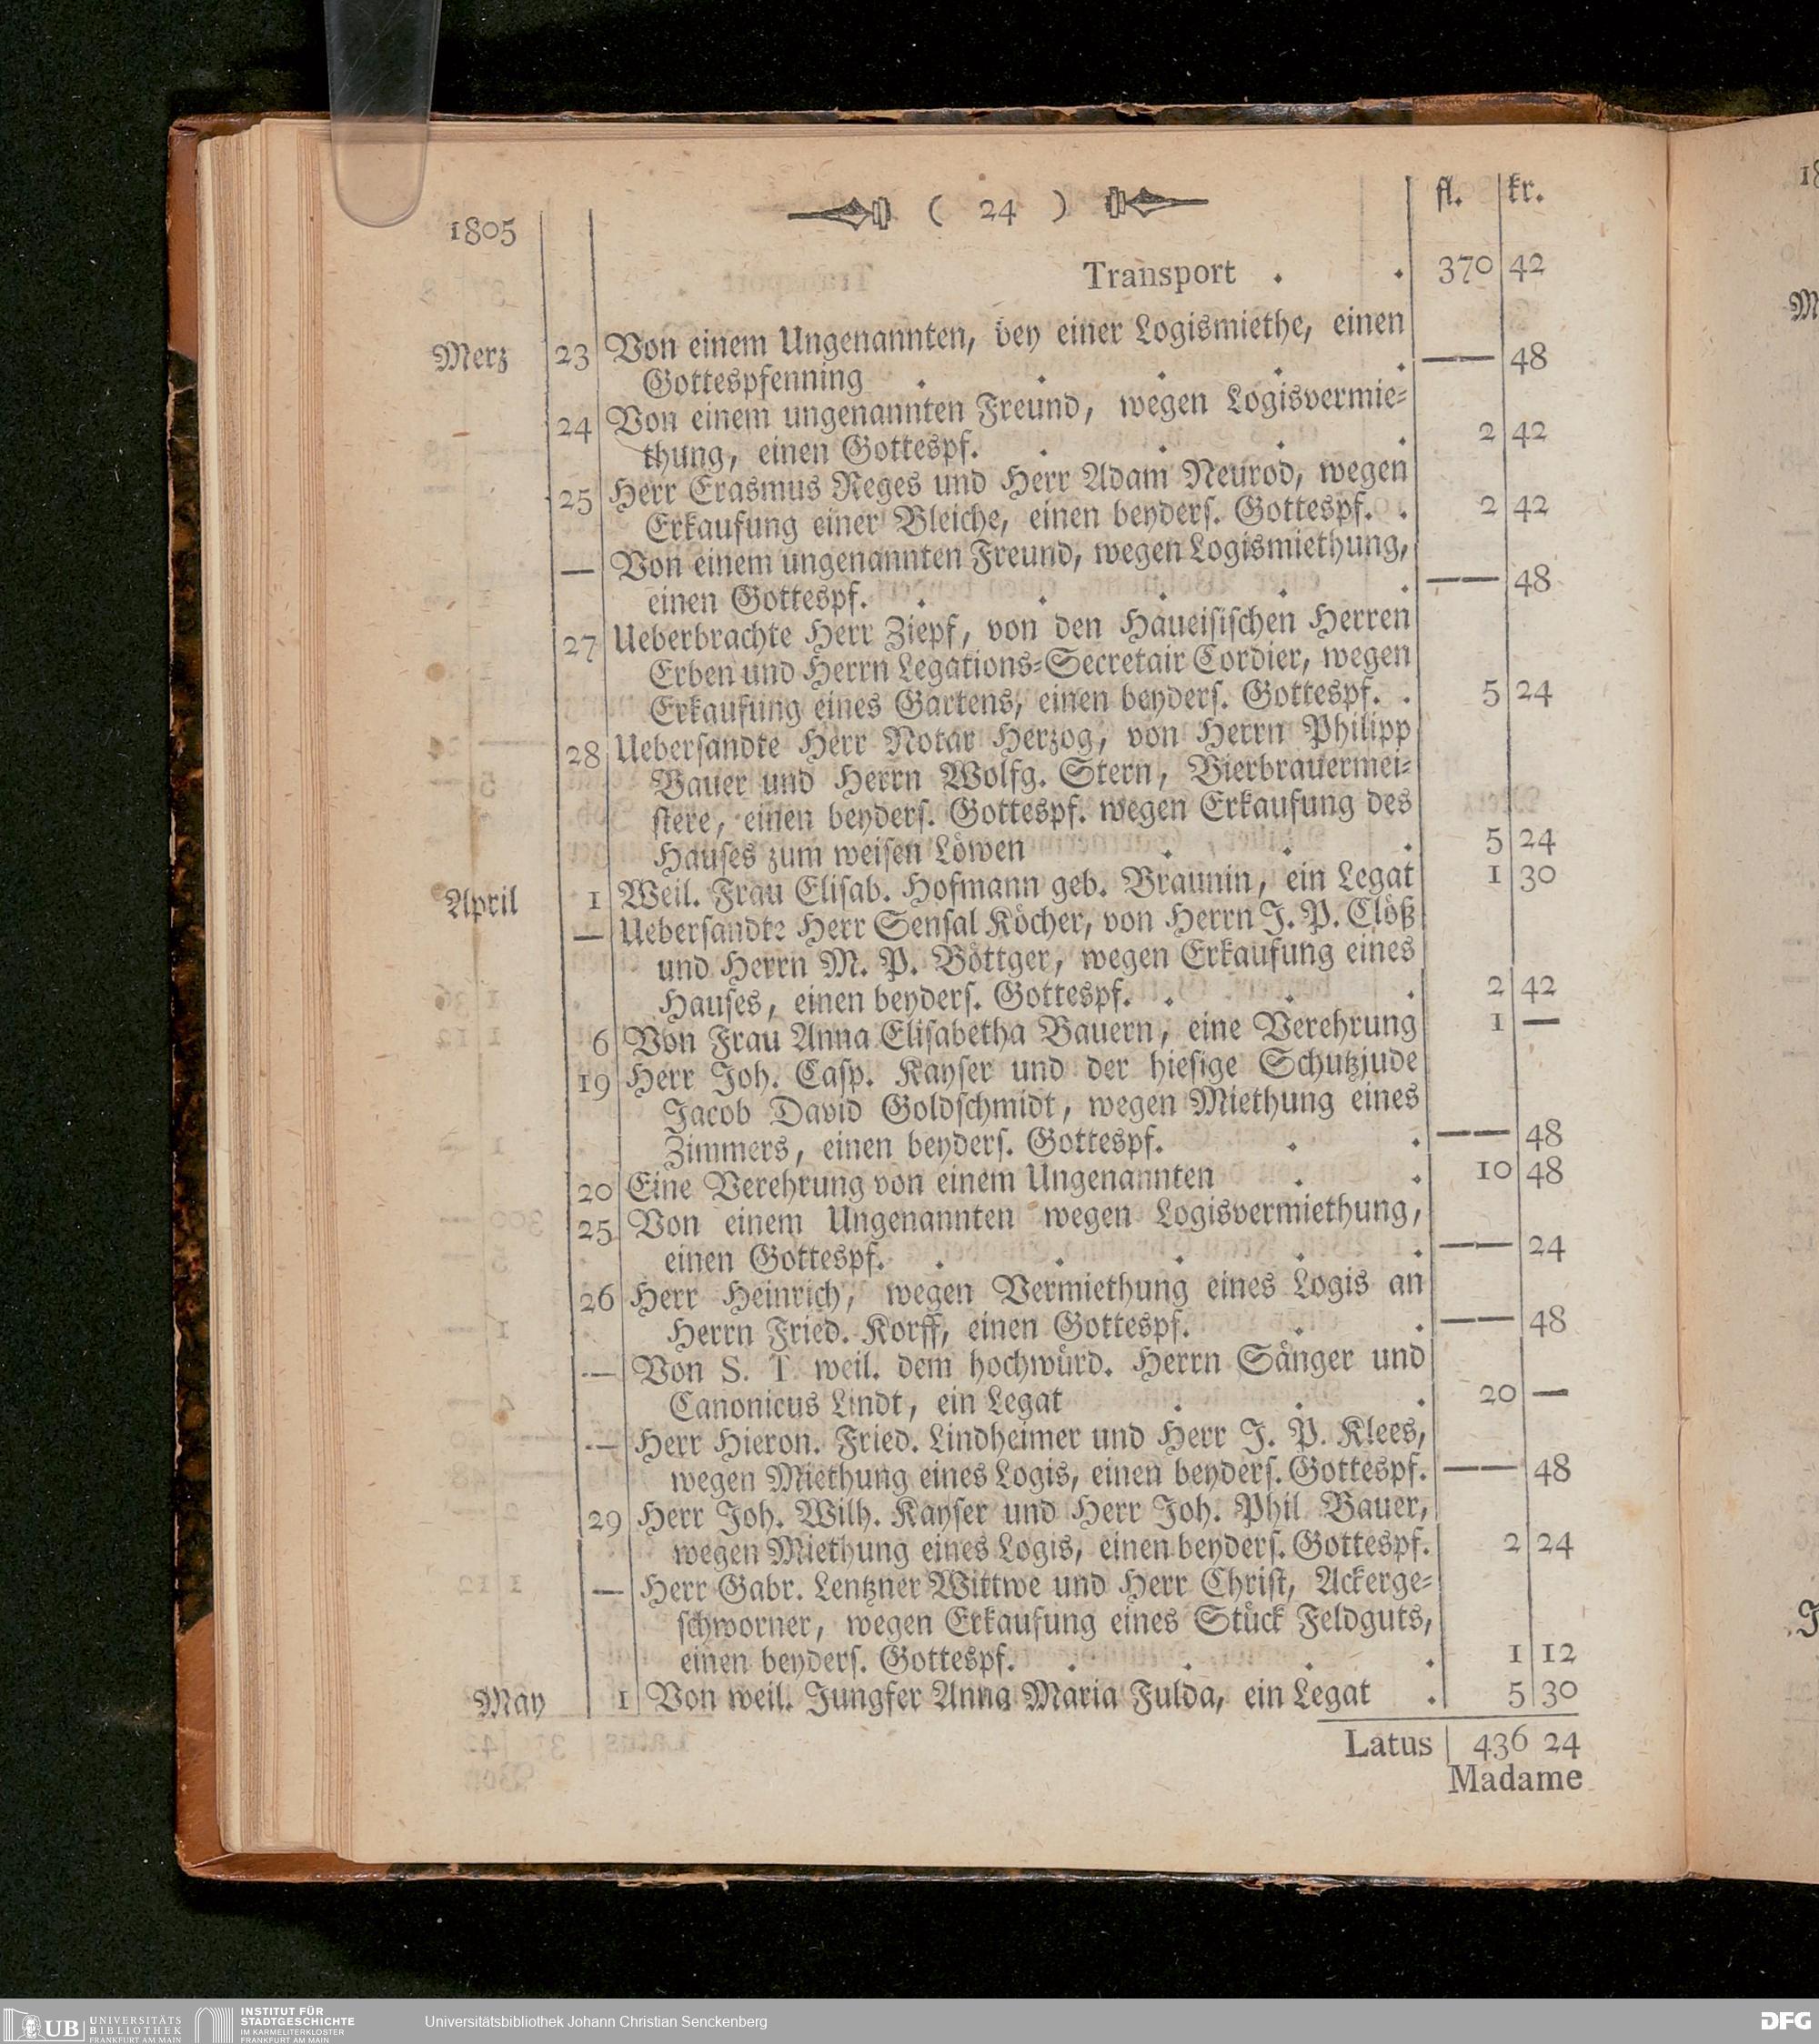 1805 ( 24 ) fl. kr.
Transport . . 370 42
Merz 23 Von einem Ungenannten, bey einer Logismiethe, einen
Gottespfenning . . . . . —— 48
24 Von einem ungenannten Freund, wegen Logisvermie-
thung, einen Gottespf. . . . . 2 42
25 Herr Erasmus Reges und Herr Adam Neurod, wegen
Erkaufung einer Bleiche, einen beyders. Gottespf. . 2 42
— Von einem ungenannten Freund, wegen Logismiethung,
einen Gottespf. . . . . . —— 48
27 Ueberbrachte Herr Ziepf, von den Haueisischen Herren
Erben und Herrn Legations-Secretair Cordier, wegen
Erkaufung eines Gartens, einen beyders. Gottespf. . 5 24
28 Uebersandte Herr Notar Herzog, von Herrn Philipp
Bauer und Herrn Wolfg. Stern, Bierbrauermei-
stere, einen beyders. Gottespf. wegen Erkaufung des
Hauses zum weisen Löwen . . . 5 24
April 1 Weil. Frau Elisab. Hofmann geb. Braunin, ein Legat 1 30
— Uebersandte Herr Sensal Köcher, von Herrn J. P. Clöß
und Herrn M. P. Böttger, wegen Erkaufung eines
Hauses, einen beyders. Gottespf. . . . 2 42
6 Von Frau Anna Elisabetha Bauern, eine Verehrung 1 —
19 Herr Joh. Casp. Kayser und der hiesige Schutzjude
Jacob David Goldschmidt, wegen Miethung eines
Zimmers, einen beyders. Gottespf. . . —— 48
20 Eine Verehrung von einem Ungenannten . . 10 48
25 Von einem Ungenannten wegen Logisvermiethung,
einen Gottespf. . . . . . —— 24
26 Herr Heinrich, wegen Vermiethung eines Logis an
Herrn Fried. Korff, einen Gottespf. . . —— 48
— Von S. T. weil. dem hochwürd. Herrn Sänger und
Canonicus Lindt, ein Legat . . . 20 —
— Herr Hieron. Fried. Lindheimer und Herr J. P. Klees,
wegen Miethung eines Logis, einen beyders. Gottespf. —— 48
29 Herr Joh. Wilh. Kayser und Herr Joh. Phil Bauer,
wegen Miethung eines Logis, einen beyders. Gottespf. 2 24
— Herr Gabr. Lentzner Wittwe und Herr Christ, Ackerge-
schworner, wegen Erkaufung eines Stück Feldguts,
einen beyders. Gottespf. . . . . 1 12
May 1 Von weil. Jungfer Anna Maria Fulda, ein Legat . 5 30
Latus 436 24
Madame
UB UNIVERSITÄTS
BIBLIOTHEK
FRANKFURT AM MAIN
INSTITUT FÜR
STADTGESCHICHTE
IM KARMELITERKLOSTER
FRANKFURT AM MAIN
Universitätsbibliothek Johann Christian Senckenberg
DFG